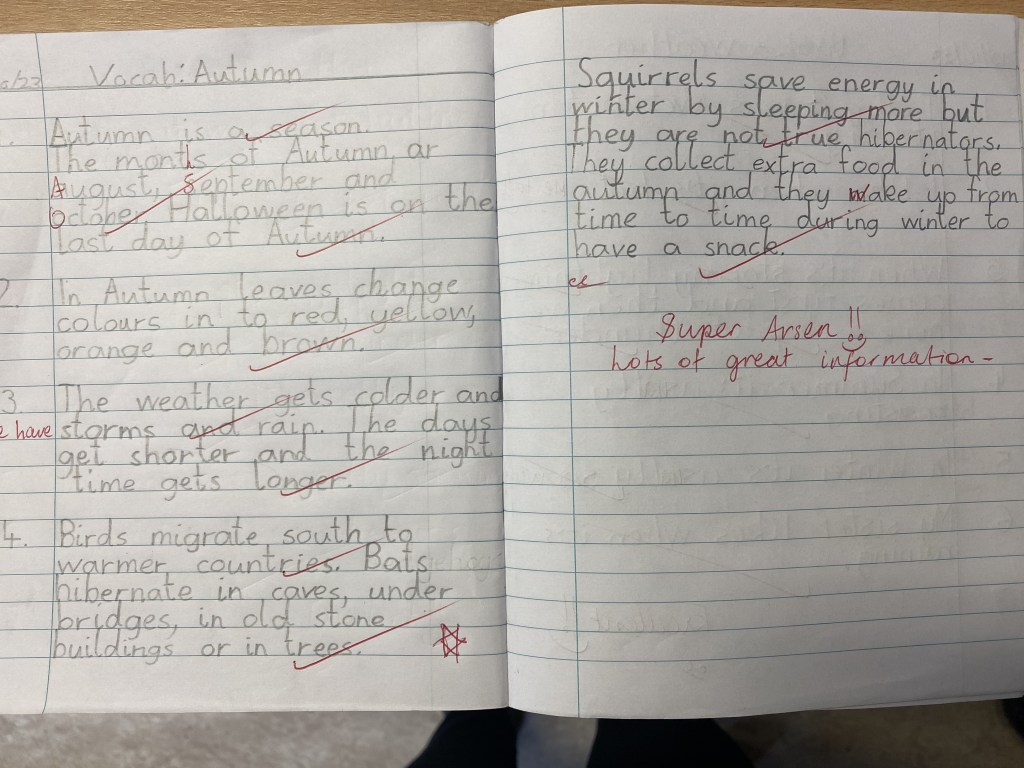 Vocab: Autumn
Autumn is a season.
The months of Autumn ar
August, September and
October Halloween is on the
last day of Autumn.
2. In Autumn leaves change
colours in to red, yellow,
orange and brown.
3. The weather gets colder and
have storms and rain. The days
get shorter and the night
time gets longer.
4. Birds migrate south to
warmer countries. Bats
hibernate in caves, under
bridges, in old stone
buildings or in trees.
Squirrels save energy in
winter by sleeping more but
they are not true hibernators.
They collect extra food in the
autumn and they wake up from
time to time during winter to
have a snack.
Super Arsen!!
Lots of great information -